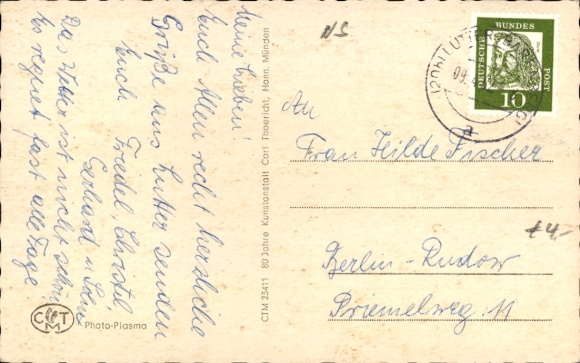 Meine Lieben!
Euch Allen recht herzliche
Grüße aus Lutter senden
Euch Friedel, Christel,
Gerhard u.
Das Wetter ist nicht schön
Es regnet fast alle Tage
CTM
Photo-Plasma
CTM 23411 80 Jahre Kunstanstalt Carl Thoericht, Hann. Münden
NS
DEUTSCHE BUNDESPOST
10
09.
a
An
Frau Hilde Fischer
€ 4,-
Berlin-Rudow
Priemelweg 11